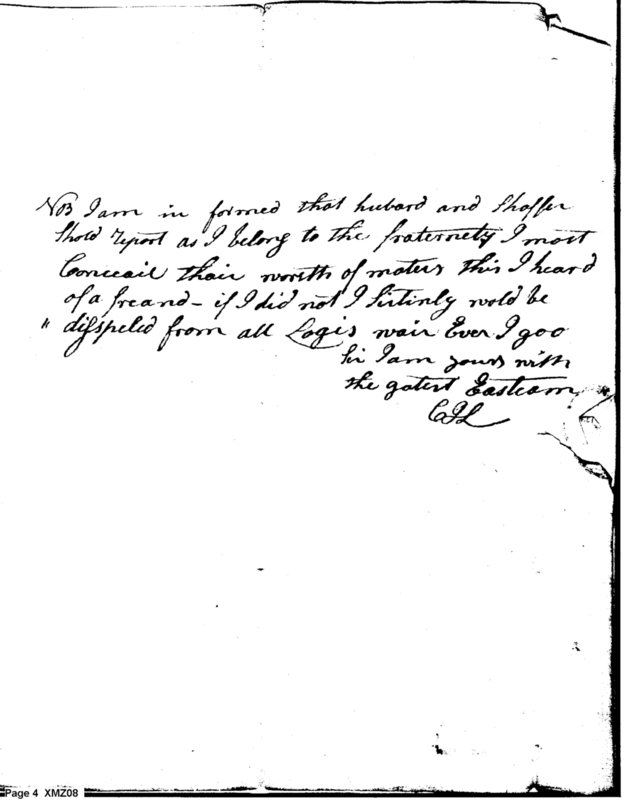 NB I am in formed that hubard and Shaffer
Shold Report as I belong to the fraternety I most
Conceail thair worsth of maters this I heard
of a freand - if I did not I Sirtinly wold be
" disspeled from all Logis wair Ever I goo
Sir I am yours with
the gatest Easteam
Page 4 XMZ08